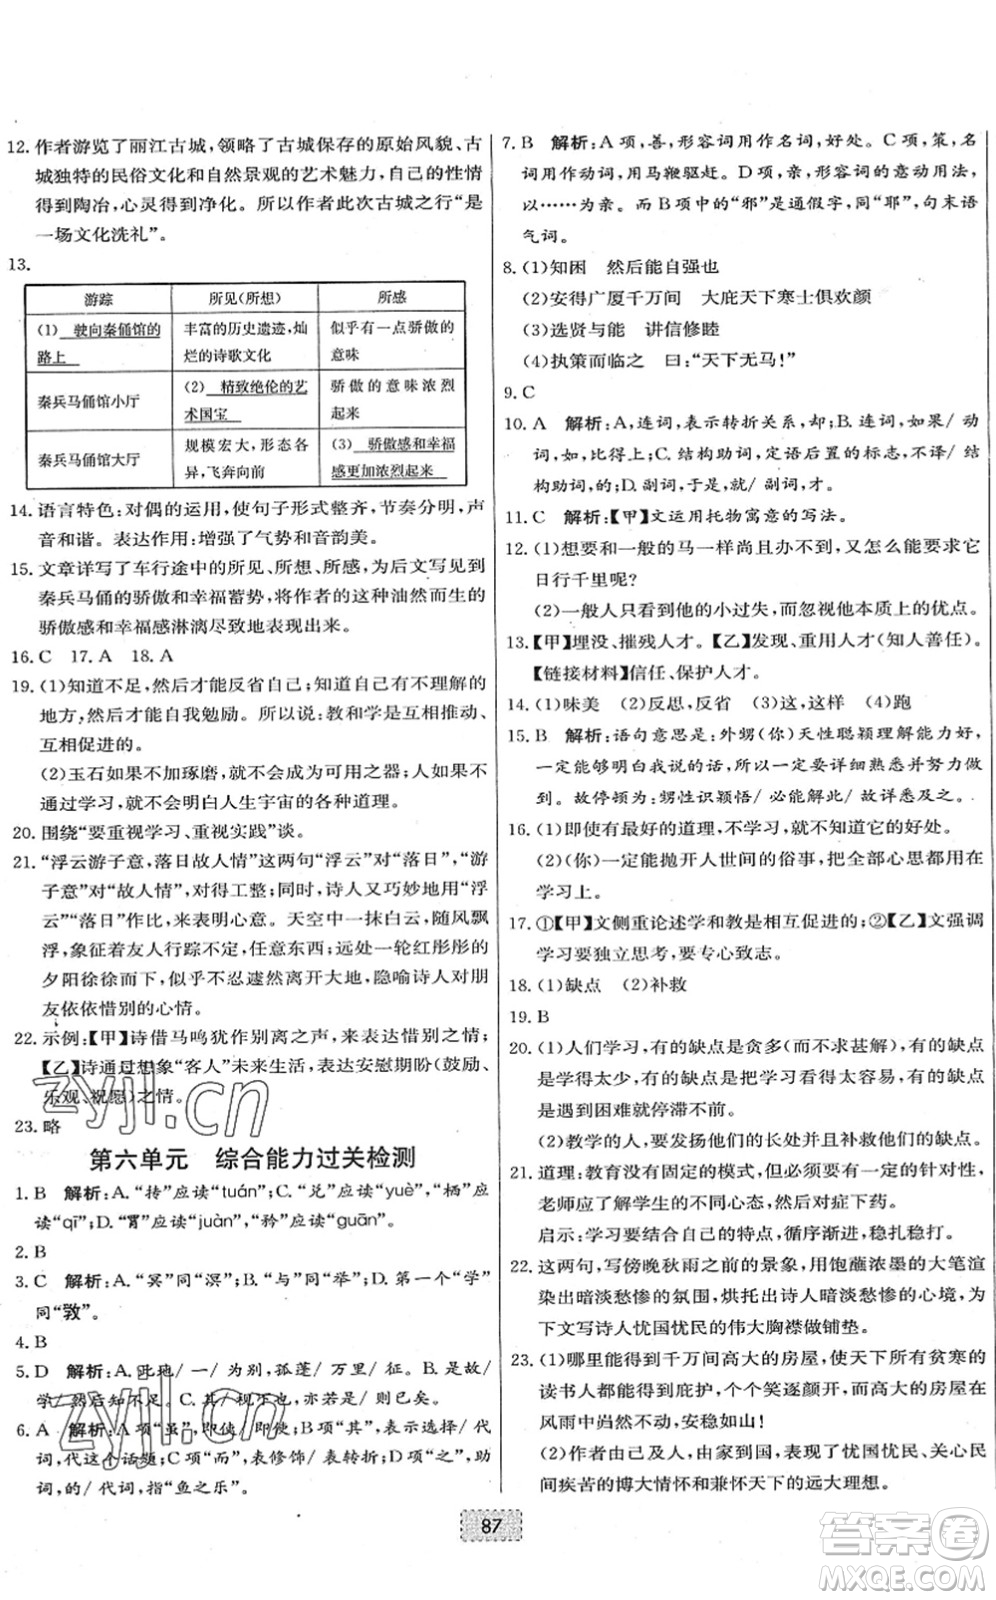 12. 作者游览了丽江古城,领略了古城保存的原始风貌、古
城独特的民俗文化和自然景观的艺术魅力,自己的性情
得到陶冶,心灵得到净化。所以作者此次古城之行“是
一场文化洗礼”。
13.
游踪 所见(所想) 所感
(1) 驶向秦俑馆的路上 丰富的历史遗迹,灿烂的诗歌文化 似乎有一点骄傲的意味
秦兵马俑馆小厅 (2) 精致绝伦的艺术国宝 骄傲的意味浓烈起来
秦兵马俑馆大厅 规模宏大,形态各异,飞奔向前 (3) 骄傲感和幸福感更加浓烈起来
14. 语言特色:对偶的运用,使句子形式整齐,节奏分明,声
音和谐。表达作用:增强了气势和音韵美。
15. 文章详写了车行途中的所见、所想、所感,为后文写见到
秦兵马俑的骄傲和幸福蓄势,将作者的这种油然而生的
骄傲感和幸福感淋漓尽致地表现出来。
16. C 17. A 18. A
19. (1)知道不足,然后才能反省自己;知道自己有不理解的
地方,然后才能自我勉励。所以说:教和学是互相推动、
互相促进的。
(2)玉石如果不加琢磨,就不能成为可用之器;人如果不
通过学习,就不能明白人生宇宙的各种道理。
20. 围绕“要重视学习、重视实践”谈。
21. “浮云游子意,落日故人情”这两句“浮云”对“落日”,“游
子意”对“故人情”,对得工整;同时,诗人又巧妙地用“浮
云”“落日”作比,来表明心意。天空中一抹白云,随风飘
浮,象征着友人行踪不定,任意东西;远处一轮红彤彤的
夕阳徐徐而下,似乎不忍遽然离开大地,隐喻诗人对朋
友依依惜别的心情。
22. 示例:【甲】诗借马鸣犹作别离之声,来表达惜别之情;
【乙】诗通过想象“客人”未来生活,表达安慰期盼(鼓励、
乐观、祝愿)之情。
23. 略
第六单元 综合能力过关检测
1. B 解析:A.“抟”应读“tuán”;C.“兑”应读“yuè”,“栖”应
读“qī”;D.“罥”应读“juàn”,“矜”应读“guān”。
2. B
3. C 解析:A.“冥”同“溟”;B.“与”同“举”;D.第一个“学”
同“敩”。
4. B
5. D 解析:A.此地/ 一/ 为别,孤蓬/ 万里/ 征。B.是故/
学/ 然后知不足。C.其/ 视下也,亦若是/ 则已矣。
6. A 解析:A项“虽”,即使/ 即使;B项“其”,表示选择/ 代
词,代这个话题;C项“而”,表修饰/ 表转折;D项“之”,助
词,的/ 代词,指“鱼之乐”。
7. B 解析:A项,善,形容词用作名词,好处。C项,策,名
词用作动词,用马鞭驱赶。D项,亲,形容词的意动用法,
以……为亲。而B项中的“邪”是通假字,同“耶”,句末语
气词。
8. (1)知困 然后能自强也
(2)安得广厦千万间 大庇天下寒士俱欢颜
(3)选贤与能 讲信修睦
(4)执策而临之 曰:“天下无马!”
9. C
10. A 解析:A,连词,表示转折关系,却;B.连词,如果/ 动
词,比得上;C.结构助词,定语后置的标志,不译/ 结
构助词,的;D.副词,于是,就/ 副词,才。
11. C 解析:【甲】文运用托物寓意的写法。
12. (1)想要和一般的马一样尚且办不到,又怎么能要求它
日行千里呢?
(2)一般人只看到他的小过失,而忽视他本质上的优点。
13. 【甲】埋没、摧残人才。【乙】发现、重用人才(知人善任)。
【链接材料】信任、保护人才。
14. (1)味美 (2)反思,反省 (3)这,这样 (4)跑
15. B 解析:语句意思是:外甥(你)天性聪颖理解能力好,
一定能够明白我所说的话,所以一定要详细熟悉并努力做
到。故停顿为:甥性识颖悟/ 必能解此/ 故详悉及之。
16. (1)即使有最好的道理,不学习,就不知道它的好处。
(2)(你)一定能抛开人世间的俗事,把全部心思都用在
学习上。
17. ①【甲】文侧重论述学和教是相互促进的;②【乙】文强调
学习要独立思考,要专心致志。
18. (1)缺点 (2)补救
19. B
20. (1)人们学习,有的缺点是贪多(而不求甚解),有的缺点
是学得太少,有的缺点是把学习看得太容易,有的缺点是
遇到困难就停滞不前。
(2)教学,就是要发挥他们的长处并且补救他们的缺点。
21. 道理:教育没有固定的模式,但必须要有一定的针对性,
老师应了解学生的不同心态,然后对症下药。
启示:学习要结合自己的特点,循序渐进,稳扎稳打。
22. 这两句,写傍晚秋雨之前的景象,用饱蘸浓墨的大笔渲
染出暗淡愁惨的氛围,烘托出诗人暗淡愁惨的心境,为
下文写诗人忧国忧民的伟大胸襟做铺垫。
23. (1)哪里能得到千万间高大的房屋,使天下所有贫寒的
读书人都得到庇护,个个笑逐颜开,而高大的房屋在
风雨中岿然不动,安稳如山!
(2)作者由己及人,由家到国,表现了忧国忧民、关心民
间疾苦的博大情怀和兼怀天下的远大理想。
87
zyjl.cn
zyjl.cn
答案圈
MXQE.COM